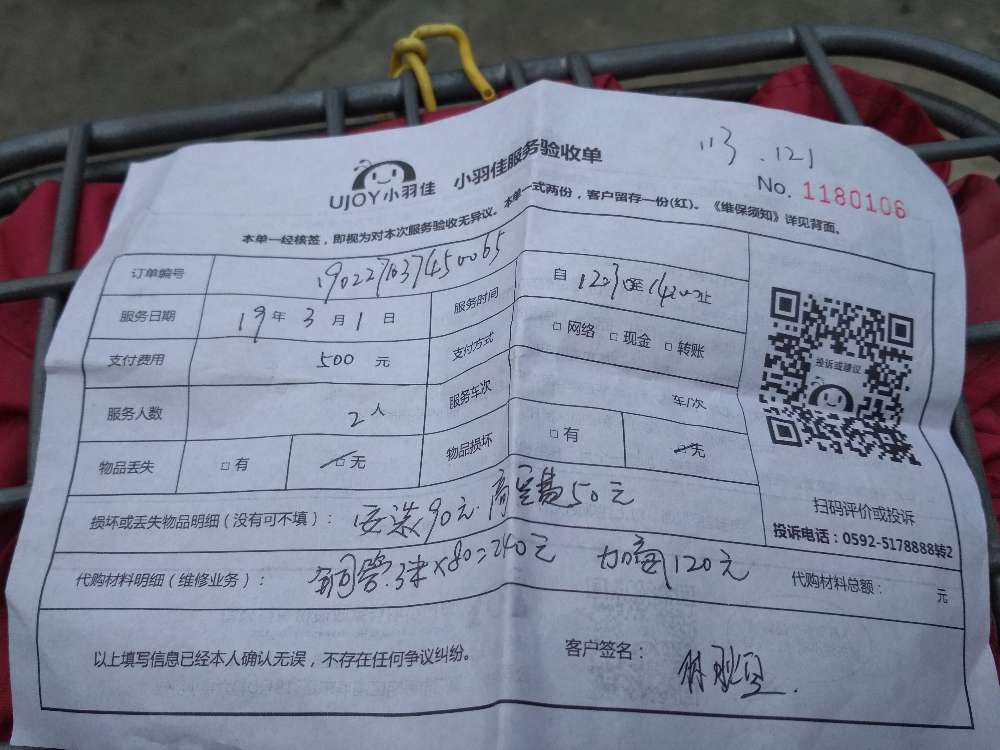 113.121
UJOY小羽佳 小羽佳服务验收单
No. 1180106
本单一经核签，即视为对本次服务验收无异议。本单一式两份，客户留存一份(红)。《维保须知》详见背面。
订单编号 190227837450065
服务时间 自 至 止
服务日期 19年3月1日
支付方式 □网络 □现金 □转账
支付费用 500 元
服务车次 车/次
服务人数 2人
物品丢失 □有 □无 物品损坏 □有 □无
投诉或建议
扫码评价或投诉
投诉电话：0592-5178888转2
损坏或丢失物品明细（没有可不填）： 安装90元. 50元
代购材料明细（维修业务）： 铜管.3米×80=240元 加氟120元 代购材料总额： 元
以上填写信息已经本人确认无误，不存在任何争议纠纷。 客户签名：